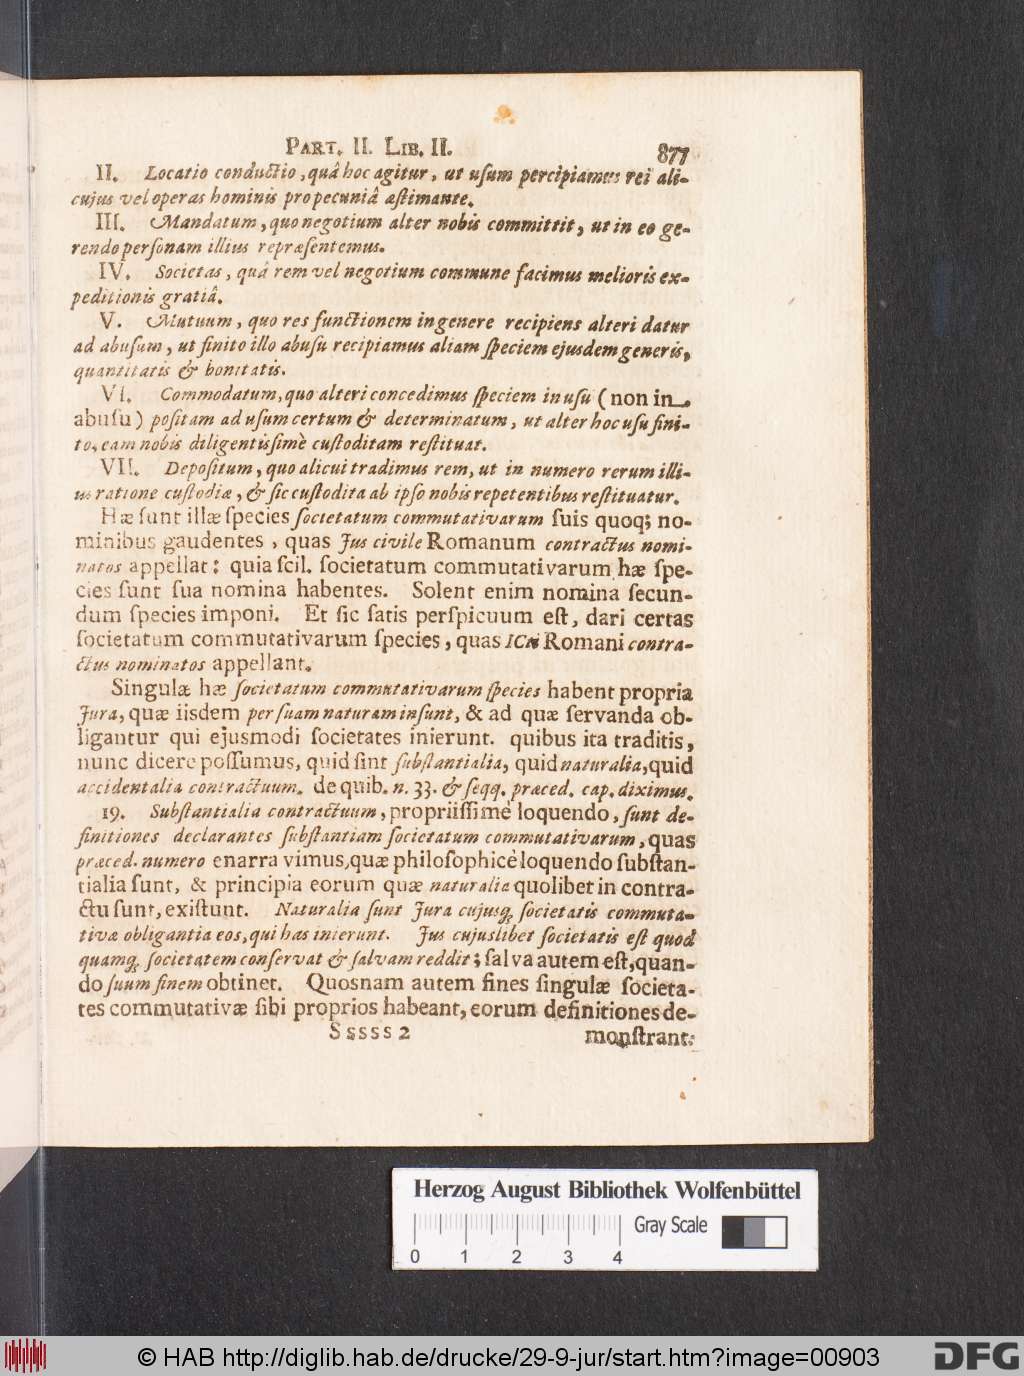 PART. II. LIB. II.
877
II. Locatio conductio, quâ hoc agitur, ut uſum percipiamus rei ali-
cujus vel operas hominis pro pecuniâ æſtimante.
III. Mandatum, quo negotium alter nobis committit, ut in eo ge-
rendo perſonam illius repræſentemus.
IV. Societas, quâ rem vel negotium commune facimus melioris ex-
peditionis gratiâ.
V. Mutuum, quo res functionem in genere recipiens alteri datur
ad abuſum, ut finito illo abuſu recipiamus aliam ſpeciem ejusdem generis,
quantitatis & bonitatis.
VI. Commodatum, quo alteri concedimus ſpeciem in uſu (non in
abuſu) poſitam ad uſum certum & determinatum, ut alter hoc uſu fini-
to, eam nobis diligentiſſimè cuſtoditam reſtituat.
VII. Depoſitum, quo alicui tradimus rem, ut in numero rerum illi-
us ratione cuſtodiæ, & ſic cuſtodita ab ipſo nobis repetentibus reſtituatur.
Hæ ſunt illæ ſpecies ſocietatum commutativarum ſuis quoq; no-
minibus gaudentes, quas Jus civile Romanum contractus nomi-
natos appellat: quia ſcil. ſocietatum commutativarum hæ ſpe-
cies ſunt ſua nomina habentes. Solent enim nomina ſecun-
dum ſpecies imponi. Et ſic ſatis perſpicuum eſt, dari certas
ſocietatum commutativarum ſpecies, quas ICti Romani contra-
ctus nominatos appellant.
Singulæ hæ ſocietatum commutativarum ſpecies habent propria
Jura, quæ iisdem per ſuam naturam inſunt, & ad quæ ſervanda ob-
ligantur qui ejusmodi ſocietates inierunt. quibus ita traditis,
nunc dicere poſſumus, quid ſint ſubſtantialia, quid naturalia, quid
accidentalia contractuum. de quib. n. 33. & ſeqq. præced. cap. diximus.
19. Subſtantialia contractuum, propriiſſimè loquendo, ſunt de-
finitiones declarantes ſubſtantiam ſocietatum commutativarum, quas
præced. numero enarravimus, quæ philoſophicè loquendo ſubſtan-
tialia ſunt, & principia eorum quæ naturalia quolibet in contra-
ctu ſunt, exiſtunt. Naturalia ſunt Jura cujusq; ſocietatis commuta-
tivæ obligantia eos, qui has inierunt. Jus cujuslibet ſocietatis eſt quod
quamq; ſocietatem conſervat & ſalvam reddit; ſalva autem eſt, quan-
do ſuum finem obtinet. Quosnam autem fines ſingulæ ſocieta-
tes commutativæ ſibi proprios habeant, eorum definitiones de-
S s s s s 2
monſtrant.
Herzog August Bibliothek Wolfenbüttel
Gray Scale
0 1 2 3 4
© HAB http://diglib.hab.de/drucke/29-9-jur/start.htm?image=00903
DFG